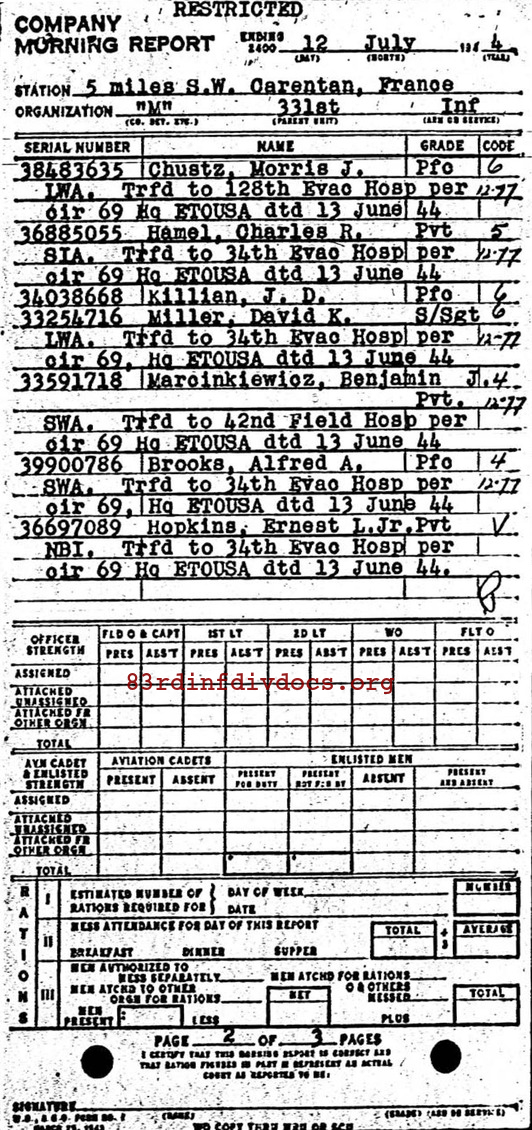 RESTRICTED
COMPANY
MORNING REPORT ENDING 2400 12 July 194 4
(DAY) (MONTH) (YEAR)
STATION 5 miles S.W. Carentan, France
ORGANIZATION "M" 331st Inf
(CO. DET. ETC.) (PARENT UNIT) (ARM OR SERVICE)
SERIAL NUMBER NAME GRADE CODE
38483635 Chustz, Morris J. Pfc 6
LWA. Trfd to 128th Evac Hosp per 12-77
cir 69 Hq ETOUSA dtd 13 June 44
36885055 Hamel, Charles R. Pvt 5
SIA. Trfd to 34th Evac Hosp per 12-77
cir 69 Hq ETOUSA dtd 13 June 44
34038668 Killian, J. D. Pfc 6
33254716 Miller, David K. S/Sgt 6
LWA. Trfd to 34th Evac Hosp per 12-77
cir 69, Hq ETOUSA dtd 13 June 44
33591718 Marcinkiewicz, Benjamin J. 4
Pvt. 12-77
SWA. Trfd to 42nd Field Hosp per
cir 69 Hq ETOUSA dtd 13 June 44
39900786 Brooks, Alfred A. Pfc 4
SWA. Trfd to 34th Evac Hosp per 12-77
cir 69, Hq ETOUSA dtd 13 June 44
36697089 Hopkins, Ernest L.Jr. Pvt V
NBI. Trfd to 34th Evac Hosp per
cir 69 Hq ETOUSA dtd 13 June 44.
OFFICER STRENGTH FLD O & CAPT 1ST LT 2D LT WO FLT O
PRES ABS'T PRES ABS'T PRES ABS'T PRES ABS'T PRES ABS'T
ASSIGNED
83rdinfdivdocs.org
ATTACHED UNASSIGNED
ATTACHED FR OTHER ORGN
TOTAL
AVN CADET & ENLISTED STRENGTH AVIATION CADETS ENLISTED MEN
PRESENT ABSENT PRESENT FOR DUTY PRESENT NOT FOR DY ABSENT PRESENT AND ABSENT
ASSIGNED
ATTACHED UNASSIGNED
ATTACHED FR OTHER ORGN
TOTAL
RATIONS
I ESTIMATED NUMBER OF RATIONS REQUIRED FOR DAY OF WEEK DATE NUMBER
II MESS ATTENDANCE FOR DAY OF THIS REPORT TOTAL ÷ 3 AVERAGE
BREAKFAST DINNER SUPPER
III MEN AUTHORIZED TO MESS SEPARATELY MEN ATCHD FOR RATIONS
MEN ATCHD TO OTHER ORGN FOR RATIONS NET & OTHERS MESSED TOTAL
MEN PRESENT LESS PLUS
PAGE 2 OF 3 PAGES
I CERTIFY THAT THIS MORNING REPORT IS CORRECT AND
THAT RATION FIGURES IN PART III REPRESENT AN ACTUAL
COUNT AS REPORTED TO ME:
SIGNATURE
(NAME) (GRADE) (ARM OR SERVICE)
W.D., A.G.O. FORM NO. 1